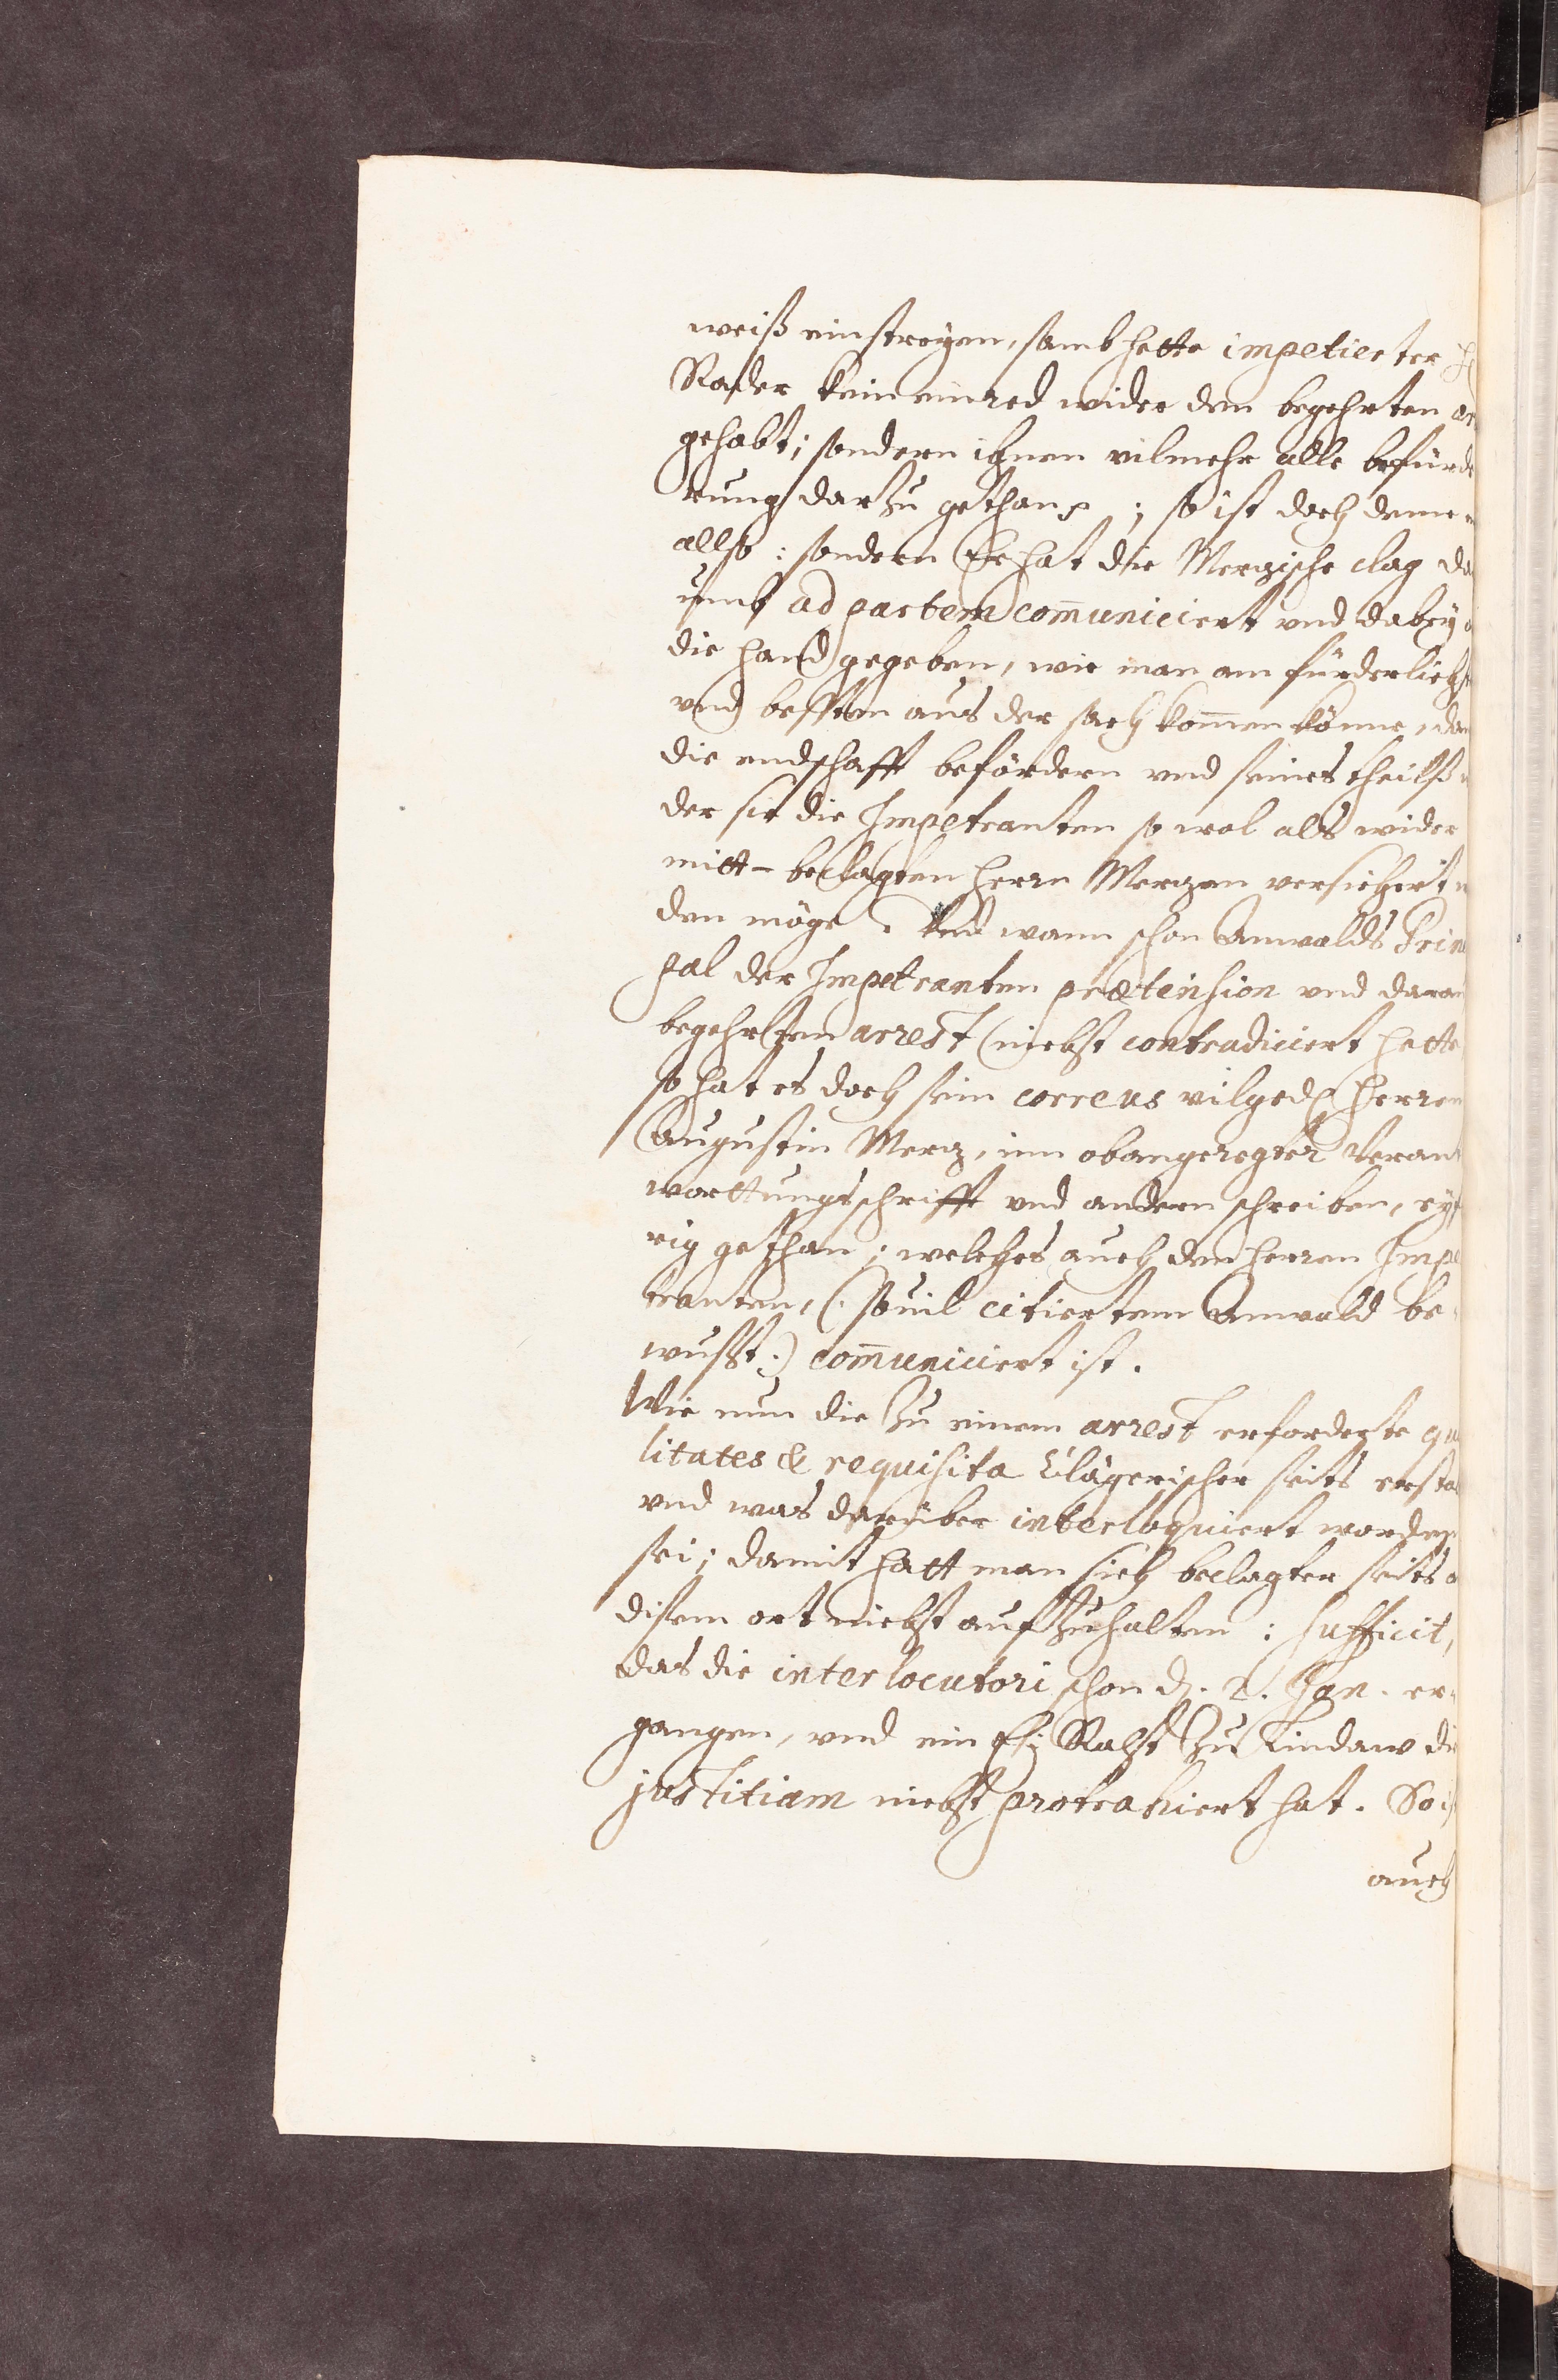 weiß einstreyen, samb hette impetierter H
Rader kein einred wider den begehrten ar
gehabt; sondern ihnen vilmehr alle befürde
rung darzu gethan ; so ist doch deme
allso: sondern Er hat die Merzische clag da
umb ad partem com̄uniciert vnd dabey
die hand gegeben, wie man am fürderlichst
vnd bessten aus der sach kom̄en könne, dan
die endschafft befördern vnd seines theilß
der sie die Impetranten so wol als wider
mitt- beclagten Herrn Merzen versichert
den möge. Vnd wann schon Anwalds Princ
pal der Impetranten prætension vnd darau
begehrten arrest nicht contradiciert hette
so hat es doch sein correus vilged. Herren
Augustin Merz, inn obangeregter Verant
worttungsschrifft vnd andern schreiben, eyf
rig gethan; welches auch den Herren Impe
tranten, (: souil citiertem Anwald be-
wusst:) com̄uniciert ist.
Wie nun die zu einem arrest erforderte qu
litates & requisita Clägerischer seits ersta
vnd was darüber interloquiert worden
sei; damit hatt man sich beclagter seits a
disem ort nicht aufzuhalten: sufficit,
das die interlocutori schon d. 2. Jan. er-
gangen, vnd ein E: Raht zu Lindaw die
justitiam nicht protrahiert hat. So is
auch